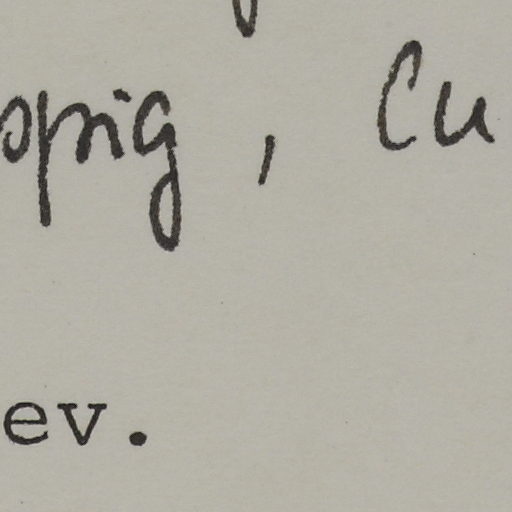 opig, Cu
ev.